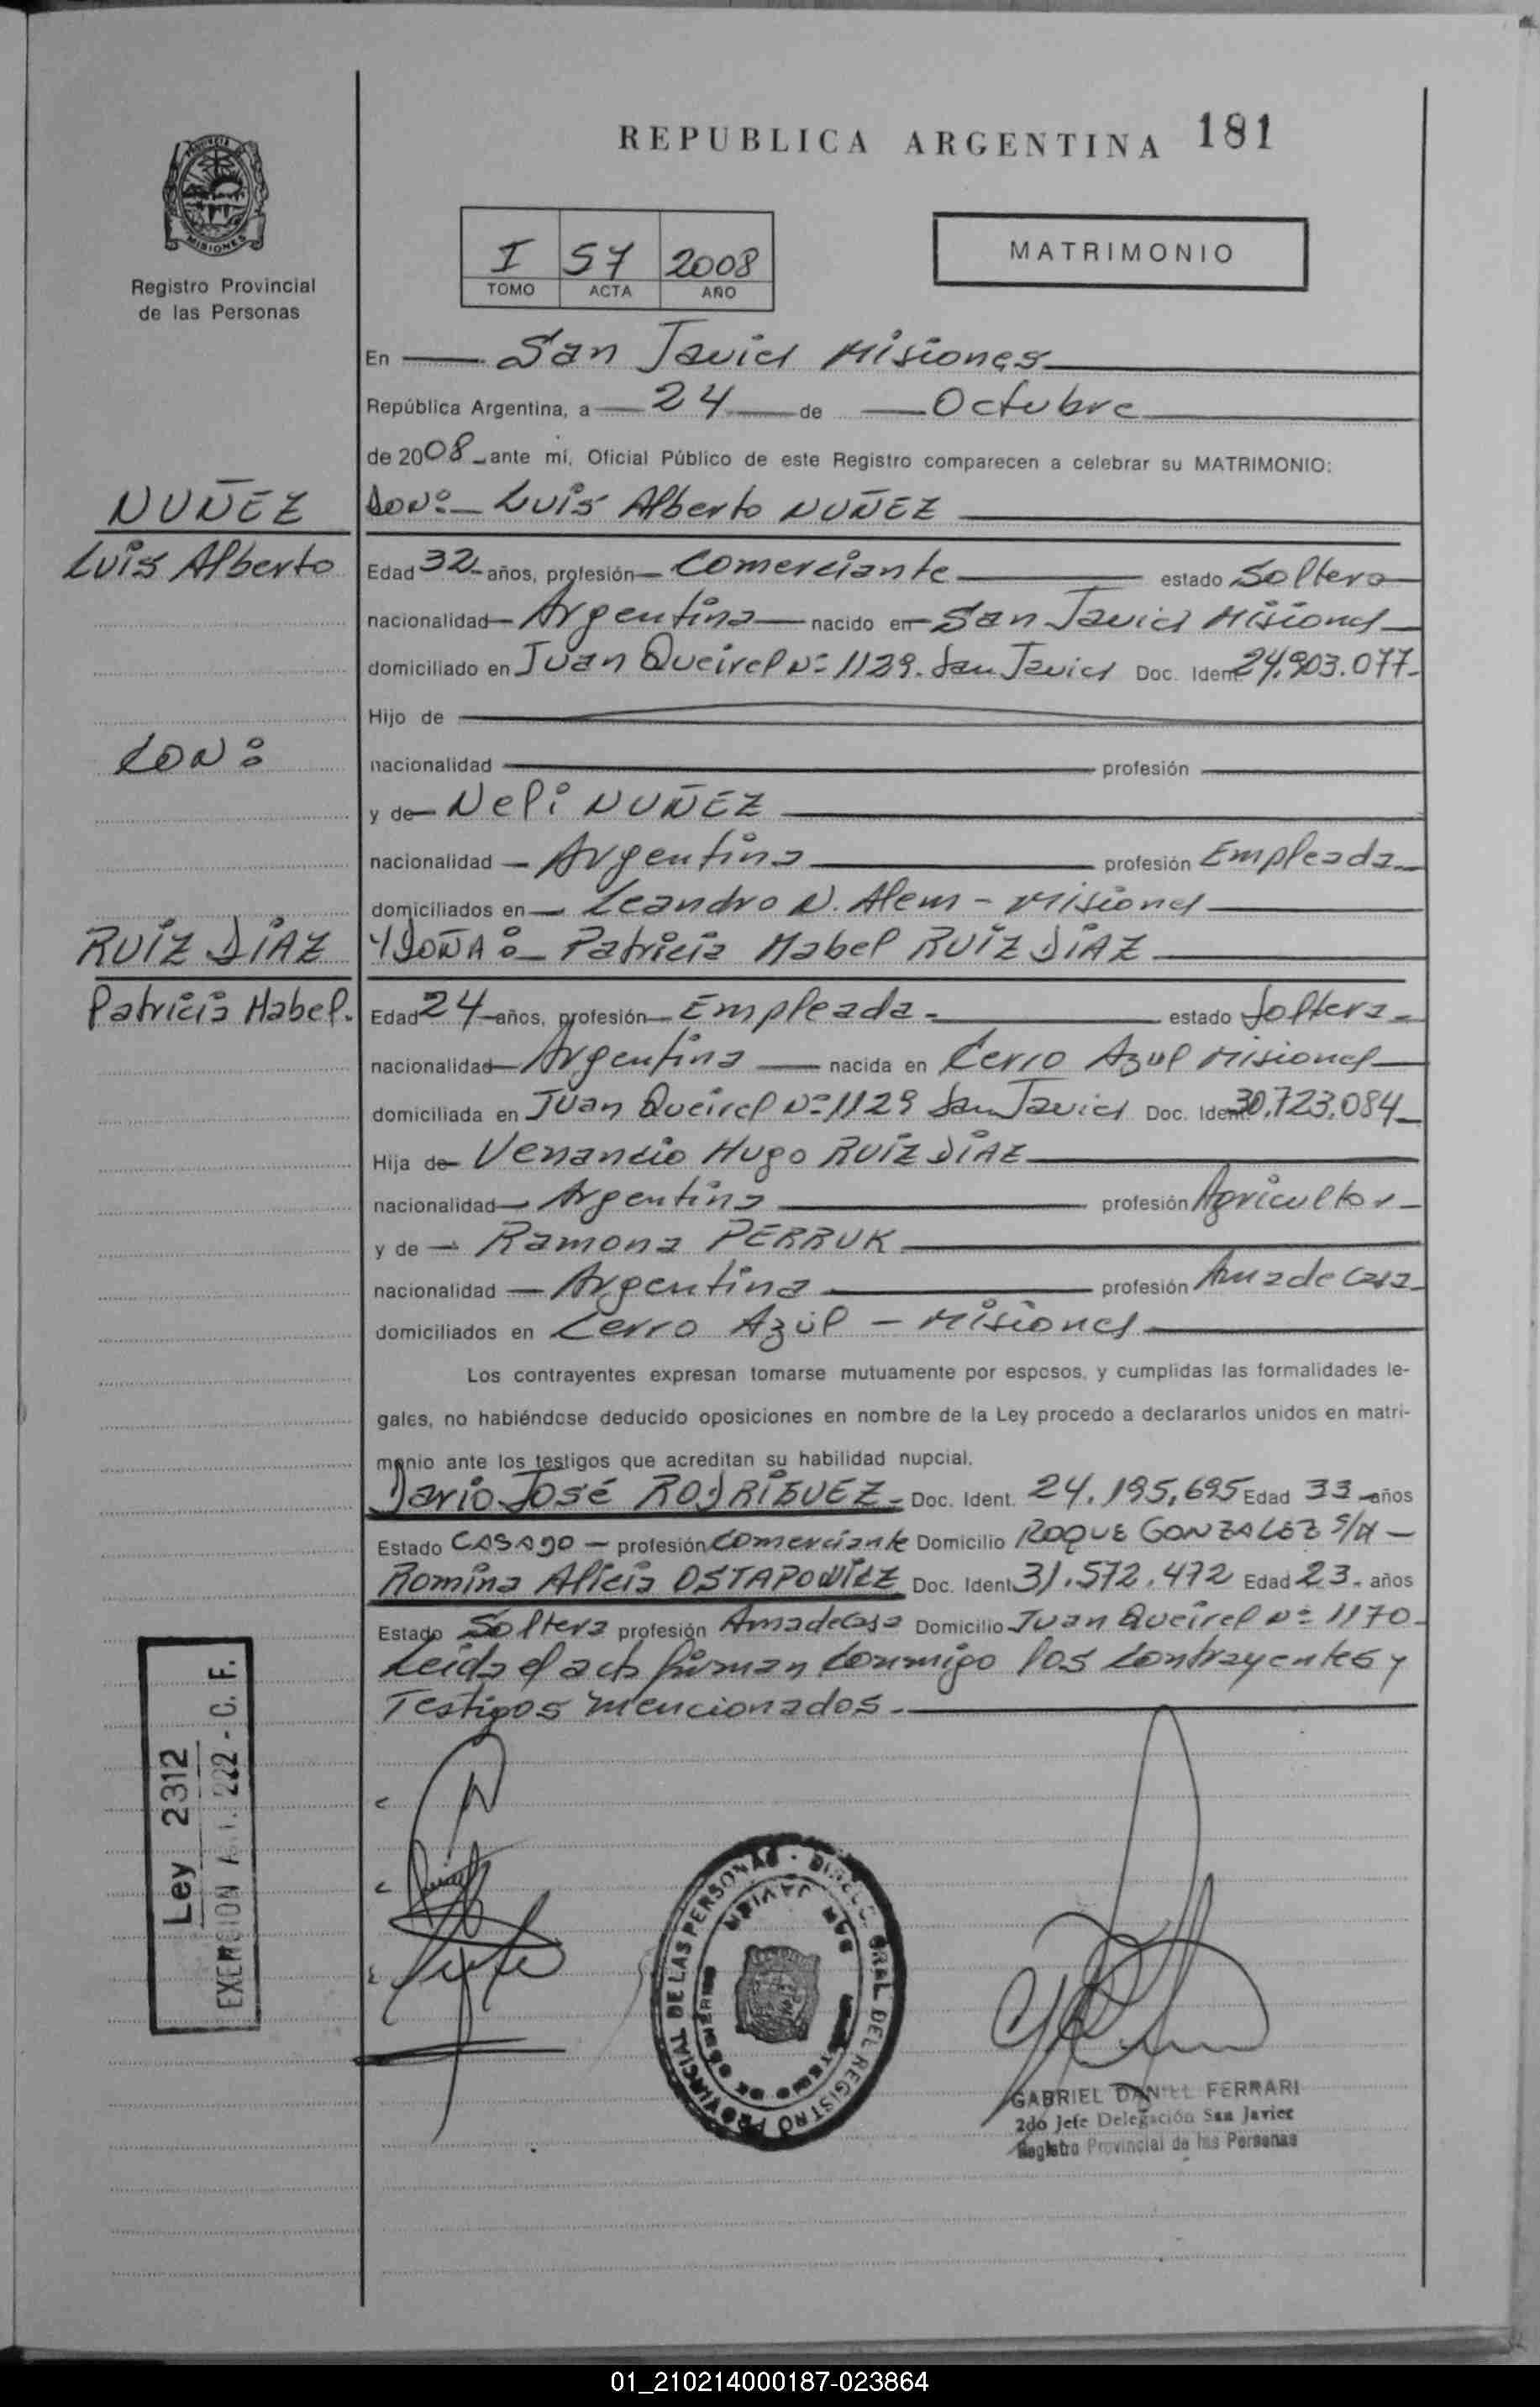 REPUBLICA ARGENTINA 181
PROVINCIA DE
MISIONES
Registro Provincial
de las Personas
I 57 2008
TOMO ACTA AÑO
MATRIMONIO
En San Javier Misiones
República Argentina, a 24 de Octubre
de 2008 ante mí, Oficial Público de este Registro comparecen a celebrar su MATRIMONIO:
NUÑEZ
Luis Alberto
DON: Luis Alberto NUÑEZ
Edad 32 años, profesión Comerciante estado Soltero
nacionalidad Argentina nacido en San Javier Misiones
domiciliado en Juan Queirel Nº 1129. San Javier Doc. Ident. 24.903.077
Hijo de
CON:
nacionalidad profesión
y de Neli NUÑEZ
nacionalidad Argentina profesión Empleada
domiciliados en Leandro N. Alem - Misiones
RUIZ DIAZ
Patricia Mabel.
Y DOÑA: Patricia Mabel RUIZ DIAZ
Edad 24 años, profesión Empleada estado Soltera
nacionalidad Argentina nacida en Cerro Azul Misiones
domiciliada en Juan Queirel Nº 1129 San Javier Doc. Ident. 30.723.084
Hija de Venancio Hugo RUIZ DIAZ
nacionalidad Argentina profesión Agricultor
y de Ramona PERRUK
nacionalidad Argentina profesión Ama de Casa
domiciliados en Cerro Azul - Misiones
Los contrayentes expresan tomarse mutuamente por esposos, y cumplidas las formalidades le-
gales, no habiéndose deducido oposiciones en nombre de la Ley procedo a declararlos unidos en matri-
monio ante los testigos que acreditan su habilidad nupcial.
Dario José RODRIGUEZ Doc. Ident. 24.195.695 Edad 33 años
Estado CASADO profesión Comerciante Domicilio ROQUE GONZALEZ S/N
Romina Alicia OSTAPOWICZ Doc. Ident. 31.572.472 Edad 23. años
Estado Soltera profesión Ama de Casa Domicilio Juan Queirel Nº 1170
Leida el acta firman conmigo los contrayentes y
Testigos mencionados.
Ley 2312
EXENCION Art. 222 - C. F.
DIREC. GRAL DEL REGISTRO PROVINCIAL DE LAS PERSONAS
SAN JAVIER
GABRIEL DANIEL FERRARI
2do Jefe Delegación San Javier
Registro Provincial de las Personas
01_210214000187-023864